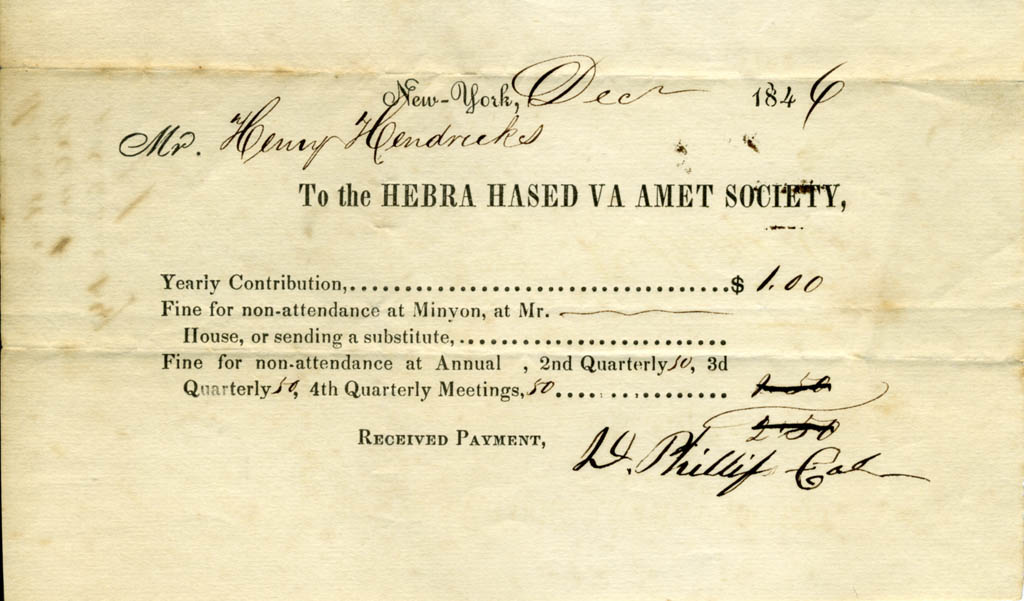 New-York, Dec 1846
Mr. Henry Hendricks
To the HEBRA HASED VA AMET SOCIETY,
Yearly Contribution,........................................$ 1.00
Fine for non-attendance at Minyon, at Mr.
House, or sending a substitute,................................
Fine for non-attendance at Annual , 2nd Quarterly 50, 3d
Quarterly 50, 4th Quarterly Meetings, 50.................... 1.50
2.50
RECEIVED PAYMENT,
D. Phillips Col